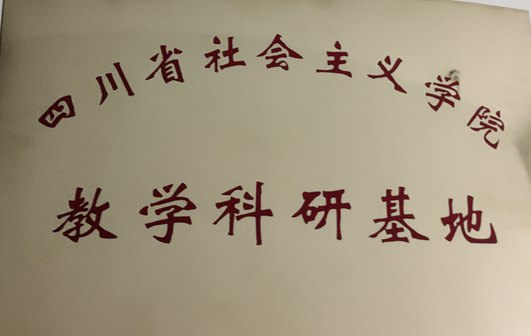 四川省社会主义学院
教学科研基地